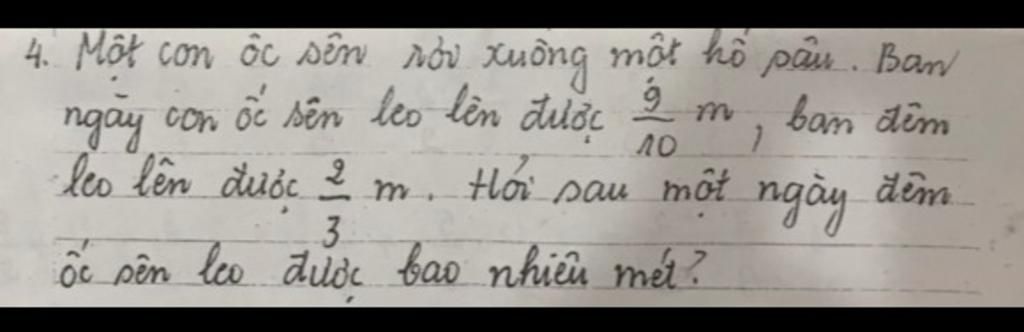 4. Một con ốc sên rơi xuống một hố sâu. Ban
ngày con ốc sên leo lên được 9/10 m, ban đêm
leo lên được 2/3 m. Hỏi sau một ngày đêm
ốc sên leo được bao nhiêu mét?